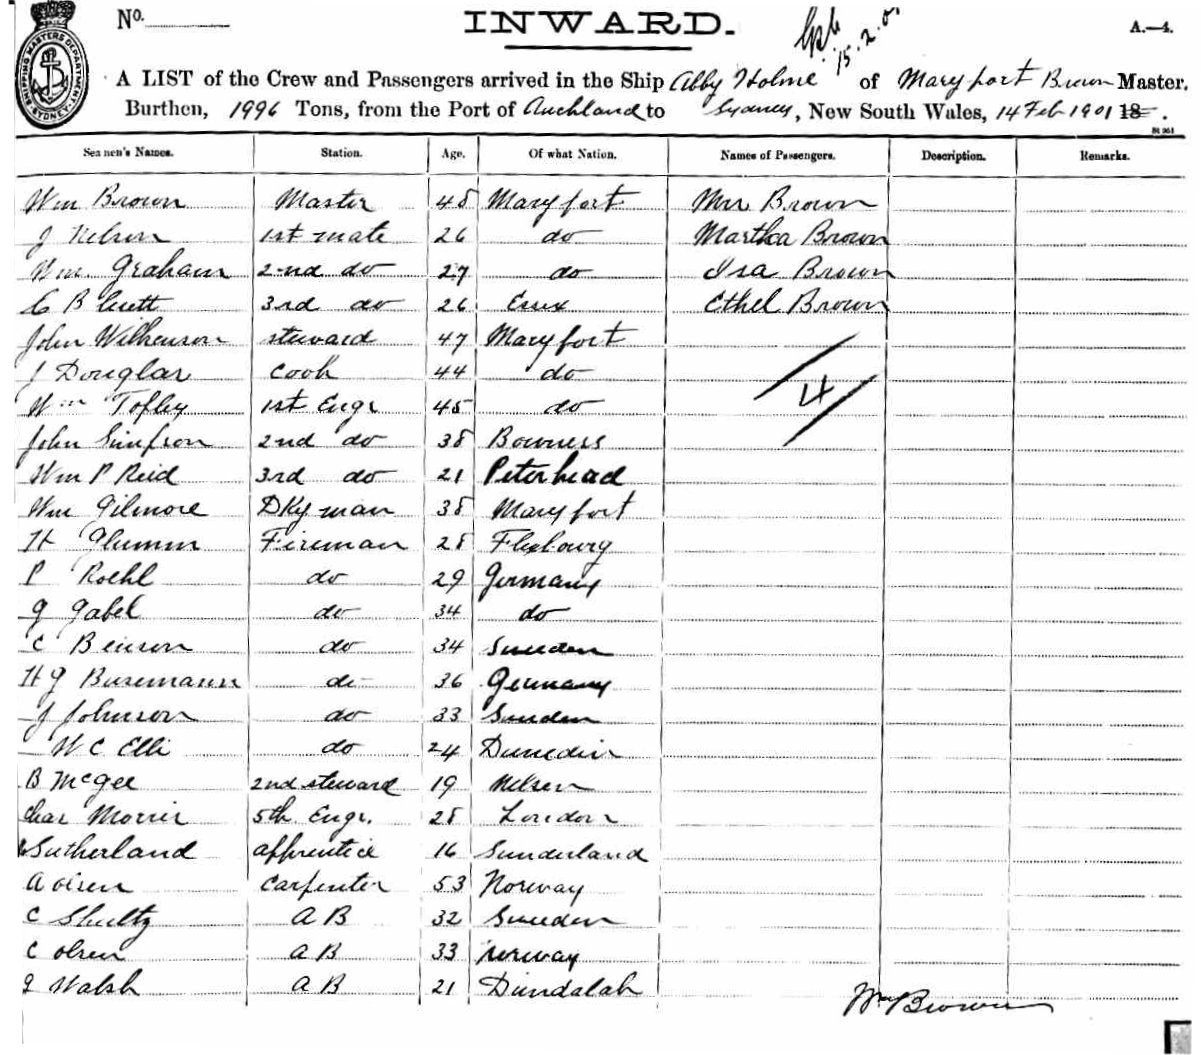 No.
INWARD.
A.—4.
15.2.01
A LIST of the Crew and Passengers arrived in the Ship Abby Holme of Maryport Brown Master,
Burthen, 1996 Tons, from the Port of Auckland to Sydney, New South Wales, 14 Feb 1901 18 .
Seamen's Names. Station. Age. Of what Nation. Names of Passengers. Description. Remarks.
Wm Brown Master 48 Maryport Mrs Brown
J Nelson 1st mate 26 do Martha Brown
Wm. Graham 2nd do 27 do Isa Brown
C B 3rd do 26 Essex Ethel Brown
John Wilkenson steward 47 Maryport
J Douglas Cook 44 do
4
Wm Tofley 1st Engr 45 do
John Simpson 2nd do 38 Bowness
Wm P Reid 3rd do 21 Peterhead
Wm Gilmore Dky man 38 Maryport
H Glumm Fireman 28
P Roehl do 29 Germany
G Gabel do 34 do
C Benson do 34 Sweden
H G Busemann do 36 Germany
J Johnson do 33 Sweden
W C Elli do 24 Dunedin
B McGee 2nd steward 19 Nelsen
Chas Morris 5th Engr. 28 London
Sutherland apprentice 16 Sunderland
A Olsen Carpenter 53 Norway
C Shultz A B 32 Sweden
C Olsen A B 33 Norway
J Walsh A B 21 Dundalah
Wm Brown